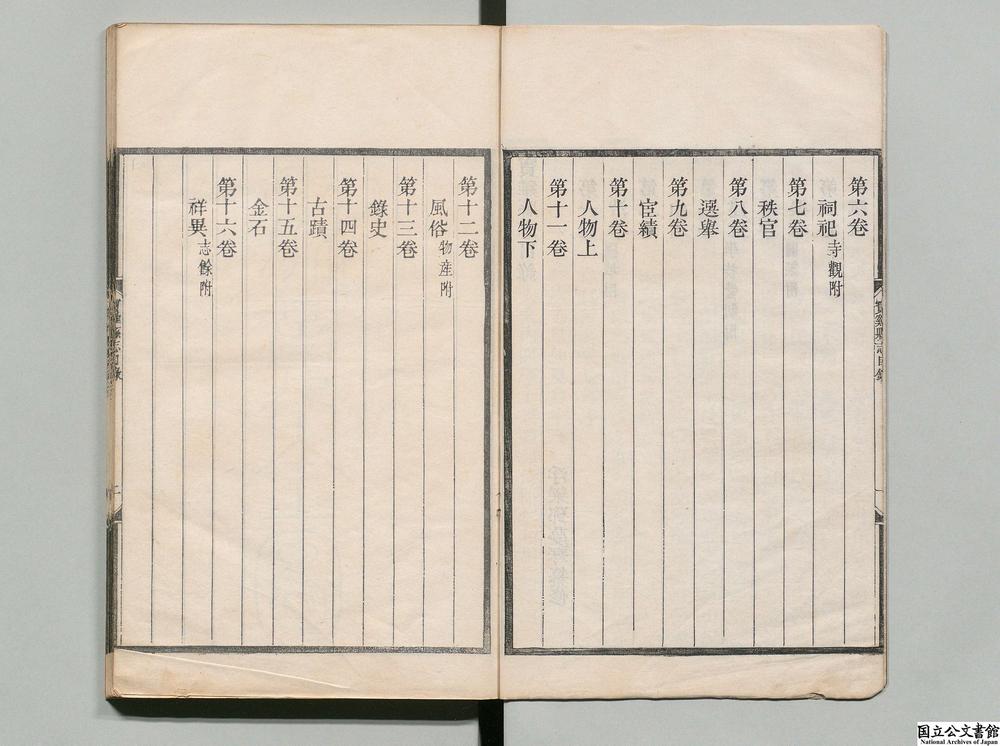 第六卷
祠祀 寺觀附
第七卷
秩官
第八卷
選舉
第九卷
宦績
第十卷
人物上
第十一卷
人物下
第十二卷
風俗 物産附
第十三卷
錄史
第十四卷
古蹟
第十五卷
金石
第十六卷
祥異 志餘附
寶雞縣志目錄
国立公文書館
National Archives of Japan